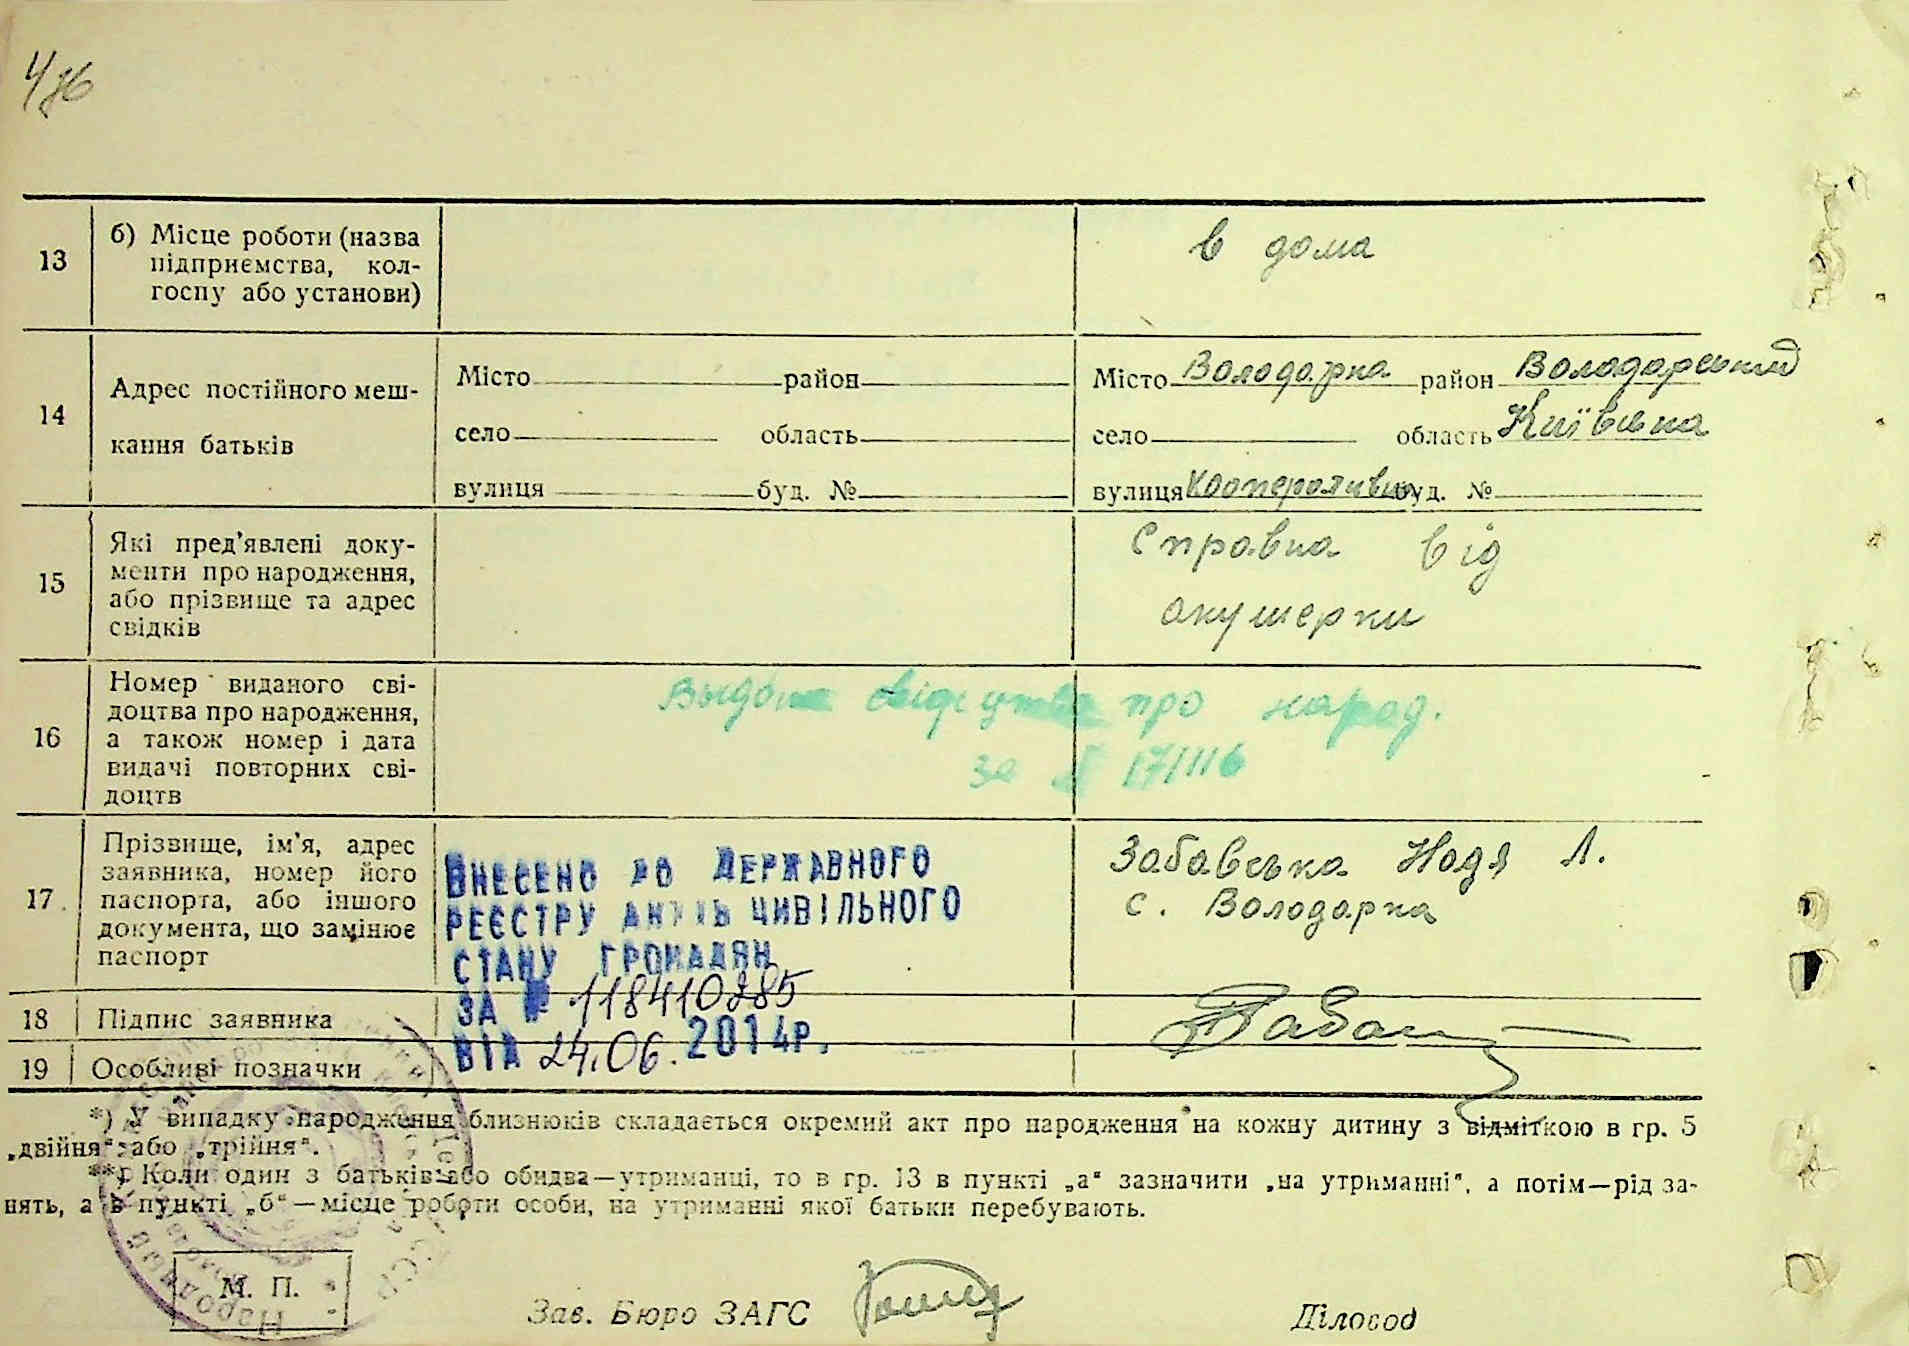 13
б) Місце роботи (назва
підприємства, кол-
госпу або установи)
в дома
14
Адрес постійного меш-
кання батьків
Місто район
село область
вулиця буд. №
Місто Володарка район Володарський
село область Київська
вулиця Кооперативна буд. №
15
Які пред'явлені доку-
менти про народження,
або прізвище та адрес
свідків
Справка від
акушерки
16
Номер виданого сві-
доцтва про народження,
а також номер і дата
видачі повторних сві-
доцтв
про народ.
за № 17/116
17
Прізвище, ім'я, адрес
заявника, номер його
паспорта, або іншого
документа, що замінює
паспорт
Внесено до Державного
реєстру актів цивільного
стану громадян
за № 118410285
від 24.06.2014р.
Забавська Надя Л.
с. Володарка
18
Підпис заявника
19
Особливі позначки
*) У випадку народження близнюків складається окремий акт про народження на кожну дитину з відміткою в гр. 5
„двійня" або „трійня".
**) Коли один з батьків або обидва—утриманці, то в гр. 13 в пункті „а" зазначити „на утриманні", а потім—рід за-
нять, а в пункті „б"—місце роботи особи, на утриманні якої батьки перебувають.
М. П.
Зав. Бюро ЗАГС
Діловод